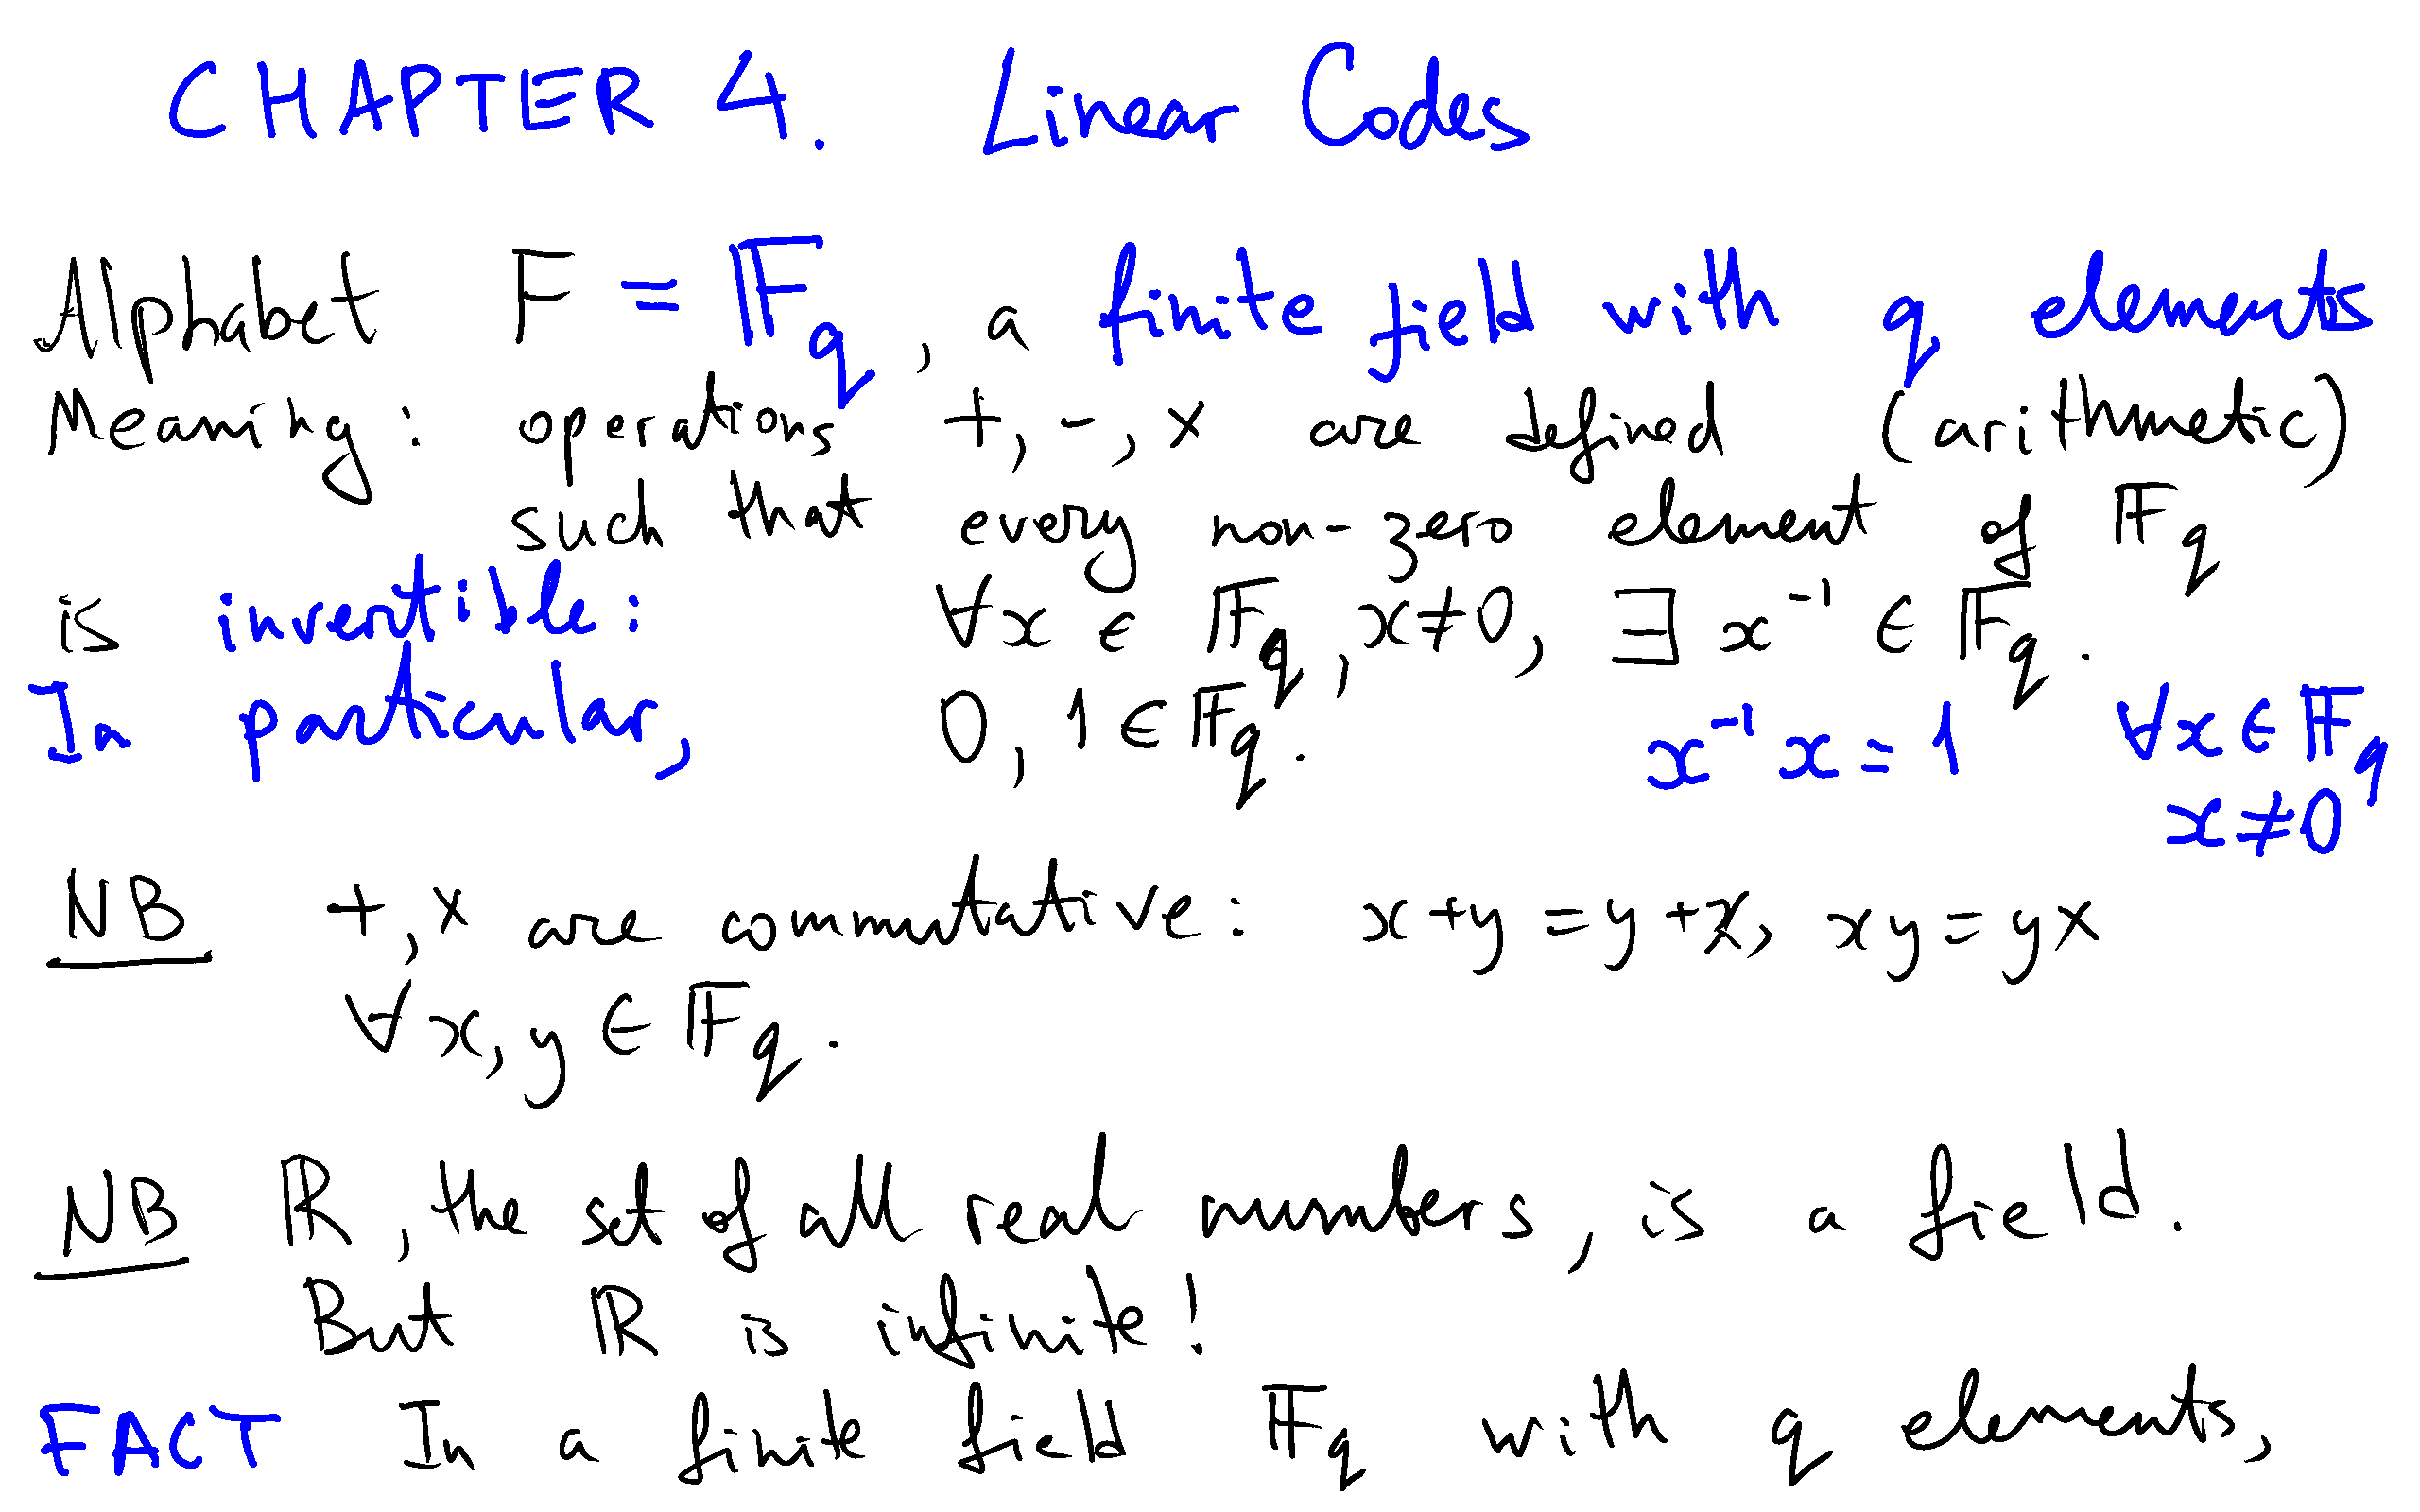 CHAPTER 4. Linear Codes
Alphabet F = 𝔽q, a finite field with q elements
Meaning: operations +, -, × are defined (arithmetic)
such that every non-zero element of 𝔽q
is invertible: ∀x ∈ 𝔽q, x≠0, ∃ x⁻¹ ∈ 𝔽q.
In particular, 0, 1 ∈ 𝔽q. x⁻¹x = 1 ∀x ∈ 𝔽q
x≠0
NB +, × are commutative: x+y = y+x, xy = yx
∀x, y ∈ 𝔽q.
NB ℝ, the set of all real numbers, is a field.
But ℝ is infinite!
FACT In a finite field 𝔽q with q elements,